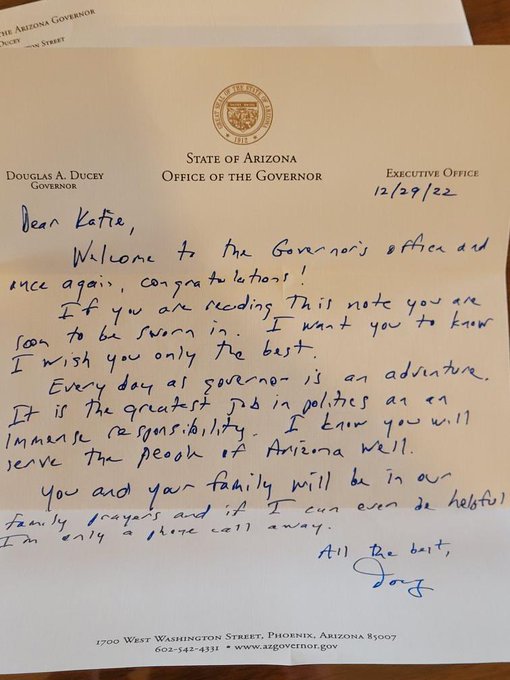 THE ARIZONA GOVERNOR
DUCEY
TON STREET
GREAT SEAL OF THE STATE OF ARIZONA
1912
STATE OF ARIZONA
OFFICE OF THE GOVERNOR
DOUGLAS A. DUCEY
GOVERNOR
EXECUTIVE OFFICE
12/29/22
Dear Katie,
Welcome to the Governor's office and
once again, congratulations!
If you are reading this note you are
soon to be sworn in. I want you to know
I wish you only the best.
Every day as governor is an adventure.
It is the greatest job in politics an an
immense responsibility. I know you will
serve the people of Arizona well.
You and your family will be in our
family prayers and if I can ever be helpful
I'm only a phone call away.
All the best,
Doug
1700 WEST WASHINGTON STREET, PHOENIX, ARIZONA 85007
602-542-4331 • www.azgovernor.gov